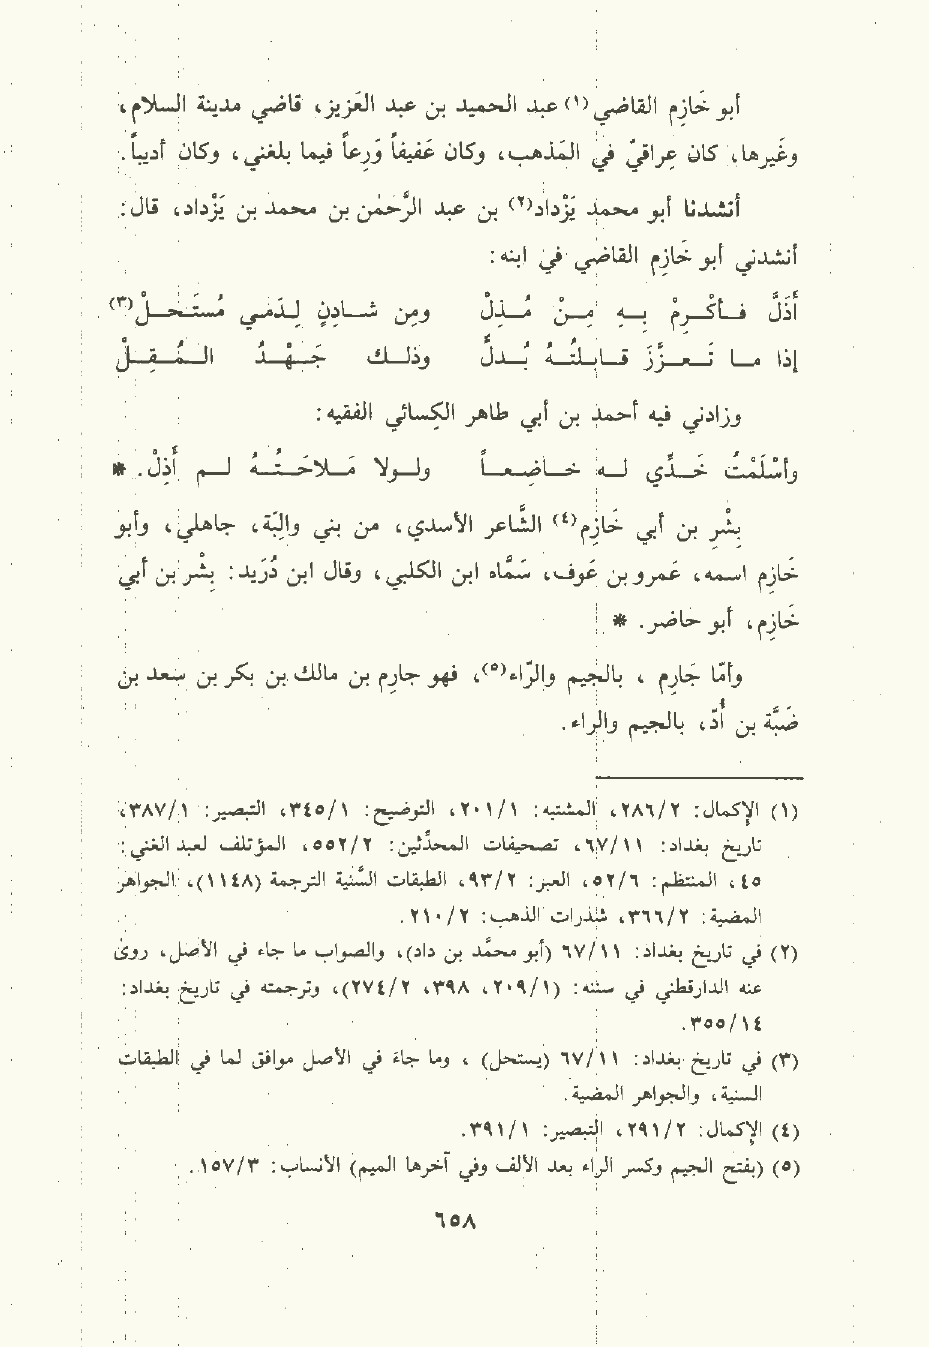 أبو خَازِم القاضي(١) عبد الحميد بن عبد العَزيز، قاضي مدينة السلام،
وغَيرها، كان عِراقيّ في المَذهب، وكان عَفيفاً وَرِعاً فيما بلغني، وكان أديباً.
أنشدنا أبو محمد يَزْداد(٢) بن عبد الرَّحمٰن بن محمد بن يَزْداد، قال:
أنشدني أبو خَازِم القاضي في ابنه:
أذَلَّ فـأكْرِمْ بـهِ مِـنْ مُـذِلّْ ومِن شـادِنٍ لِـدَمـي مُستَـحـلّْ(٣)
إذا مـا تـعـزَّزَ قـابـلتُـهُ بُـذلٍّ وذلـك جَـهْـدُ الـمُـقِـلّْ
وزادني فيه أحمد بن أبي طاهر الكِسائي الفقيه:
وأسْلَمْتُ خـدِّي لـه خـاضِـعـاً ولـولا مَـلاحَـتُـهُ لـم أَذِلّْ. *
بِشْر بن أبي خَازِم(٤) الشَّاعر الأسدي، من بني والِبَة، جاهلي، وأبو
خَازِم اسمه، عَمرو بن عَوف، سَمَّاه ابن الكلبي، وقال ابن دُرَيد: بِشْر بن أبي
خَازِم، أبو حاضر. *
وأمَّا جَارِم ، بالجيم والرَّاء(٥)، فهو جارِم بن مالك بن بكر بن سعد بن
ضَبَّة بن أُدّ، بالجيم والراء.
(١) الإكمال: ٢/٢٨٦، المشتبه: ١/٢٠١، التوضيح: ١/٣٤٥، التبصير: ١/٣٨٧،
تاريخ بغداد: ١١/٦٧، تصحيفات المحدِّثين: ٢/٥٥٢، المؤتلف لعبد الغني:
٤٥، المنتظم: ٦/٥٢، العبر: ٢/٩٣، الطبقات السَّنية الترجمة (١١٤٨)، الجواهر
المضية: ٢/٣٦٦، شذرات الذهب: ٢/٢١٠.
(٢) في تاريخ بغداد: ١١/٦٧ (أبو محمَّد بن داد)، والصواب ما جاء في الأصل، روى
عنه الدارقطني في سننه: (١/٢٠٩، ٣٩٨، ٢/٢٧٤)، وترجمته في تاريخ بغداد:
١٤/٣٥٥.
(٣) في تاريخ بغداد: ١١/٦٧ (يستحل) ، وما جَاء في الأصل موافق لما في الطبقات
السنية، والجواهر المضية.
(٤) الإكمال: ٢/٢٩١، التبصير: ١/٣٩١.
(٥) (بفتح الجيم وكسر الراء بعد الألف وفي آخرها الميم) الأنساب: ٣/١٥٧.
٦٥٨